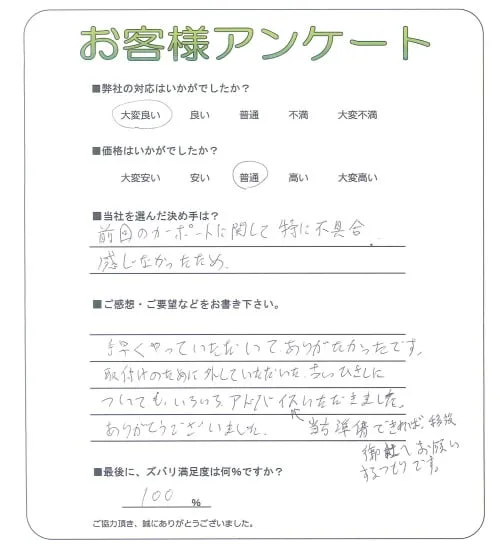 お客様アンケート
■弊社の対応はいかがでしたか？
大変良い 良い 普通 不満 大変不満
■価格はいかがでしたか？
大変安い 安い 普通 高い 大変高い
■当社を選んだ決め手は？
前回のカーポートに関して特に不具合
感じなかったため。
■ご感想・ご要望などをお書き下さい。
手早くやっていただいてありがたかったです。
取付けのために外していただいた、ちょっひさしに
ついても、いろいろ、アドバイスいただきました。
ありがとうございました。
当方準備できれば、移設
御社へお願い
するつもりです。
■最後に、ズバリ満足度は何%ですか？
100 %
ご協力頂き、誠にありがとうございました。